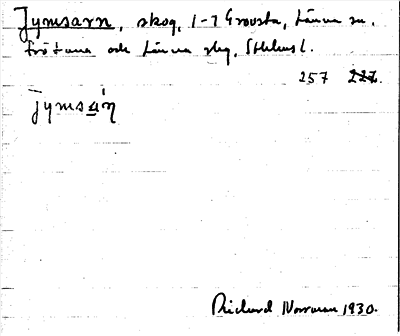 Tymsarn, skog, 1-7 Grovsta, Länna sn.
Frötuna och Länna skg, Sthlms l.
257 227.
Tymsa̲'n̥
Richard Norman 1930.